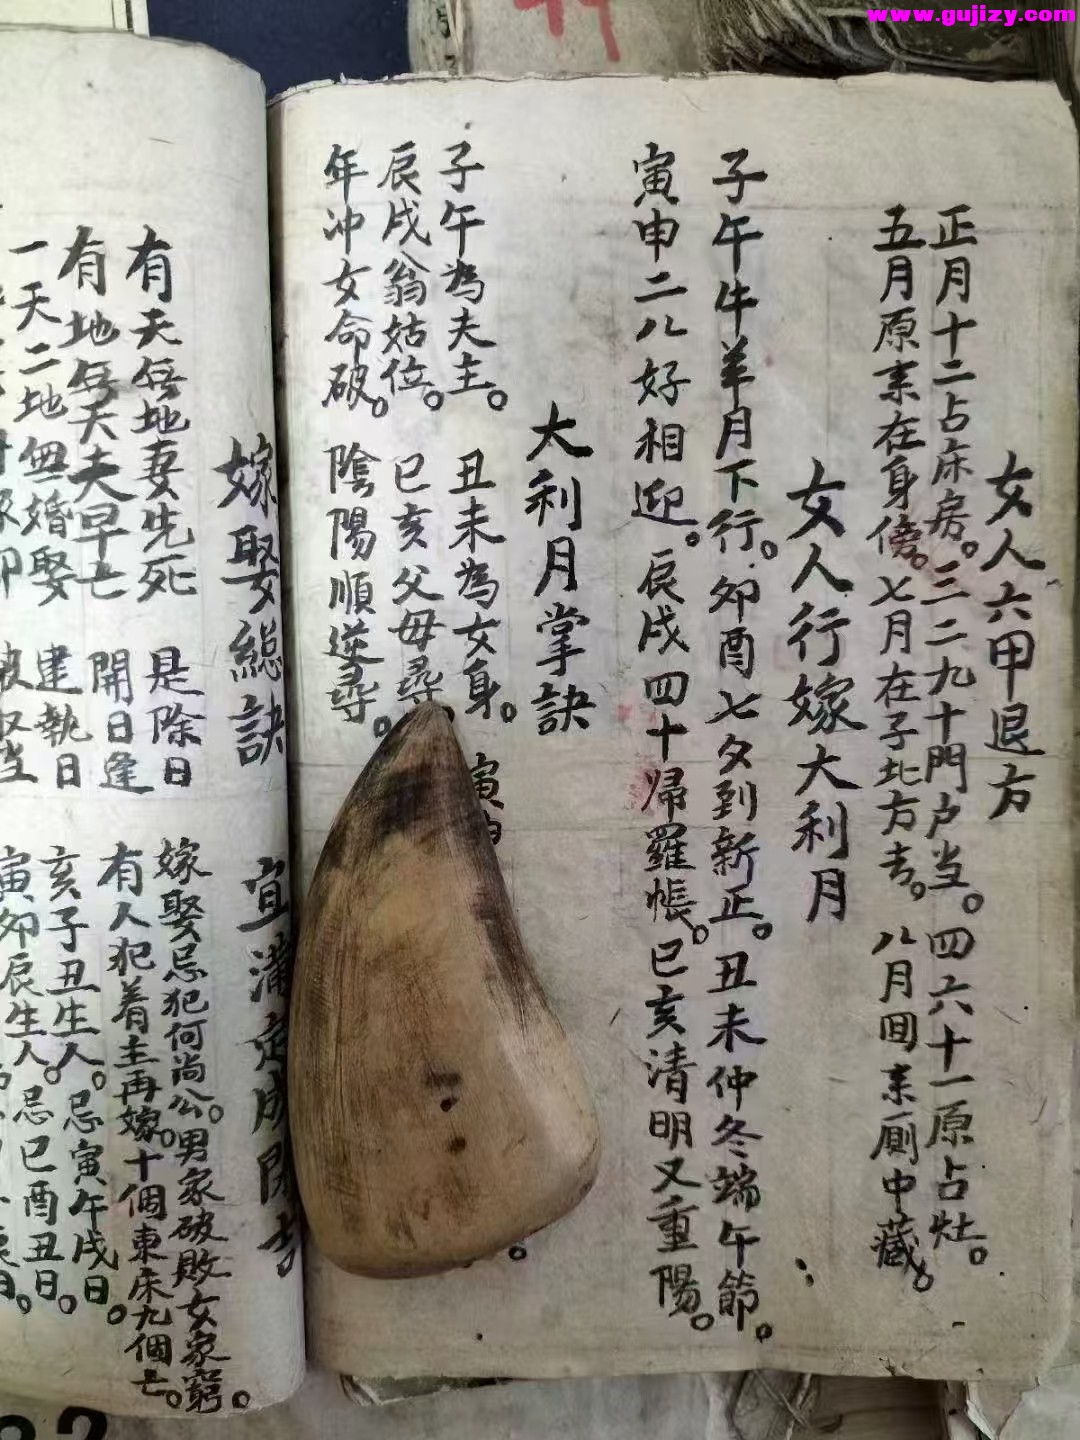 www.gujizy.com
女人六甲退方
正月十二占床房。三二九十門户当。四六十一原占灶。
五月原来在身傍。七月在子北方去。八月回来厠中藏。
女人行嫁大利月
子午牛羊月下行。卯酉七夕到新正。丑未仲冬端午節。
寅申二八好相迎。辰戌四十歸羅帳。巳亥清明又重陽。
大利月掌訣
子午為夫主。丑未為女身。寅
辰戌翁姑位。巳亥父母尋。
年冲女命破。陰陽順逆尋。
嫁娶總訣
有天無地妻先死
有地無天夫早亡
一天二地無婚娶
是除日
開日逢
建執日
宜滿定成開
嫁娶忌犯何尚公。男家破敗女家窮。
有人犯着主再嫁。十個東床九個亡。
亥子丑生人。忌寅午戌日。
寅卯辰生人。忌巳酉丑日。